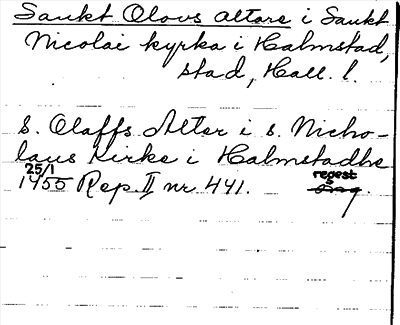 Sankt Olovs altare i Sankt
Nicolai kyrka i Halmstad,
stad, Hall. l.
S. Olaffs Alter i s. Nicho-
laus Kirke i Halmstadhe
25/1 regest
1455 Rep. II nr 441.